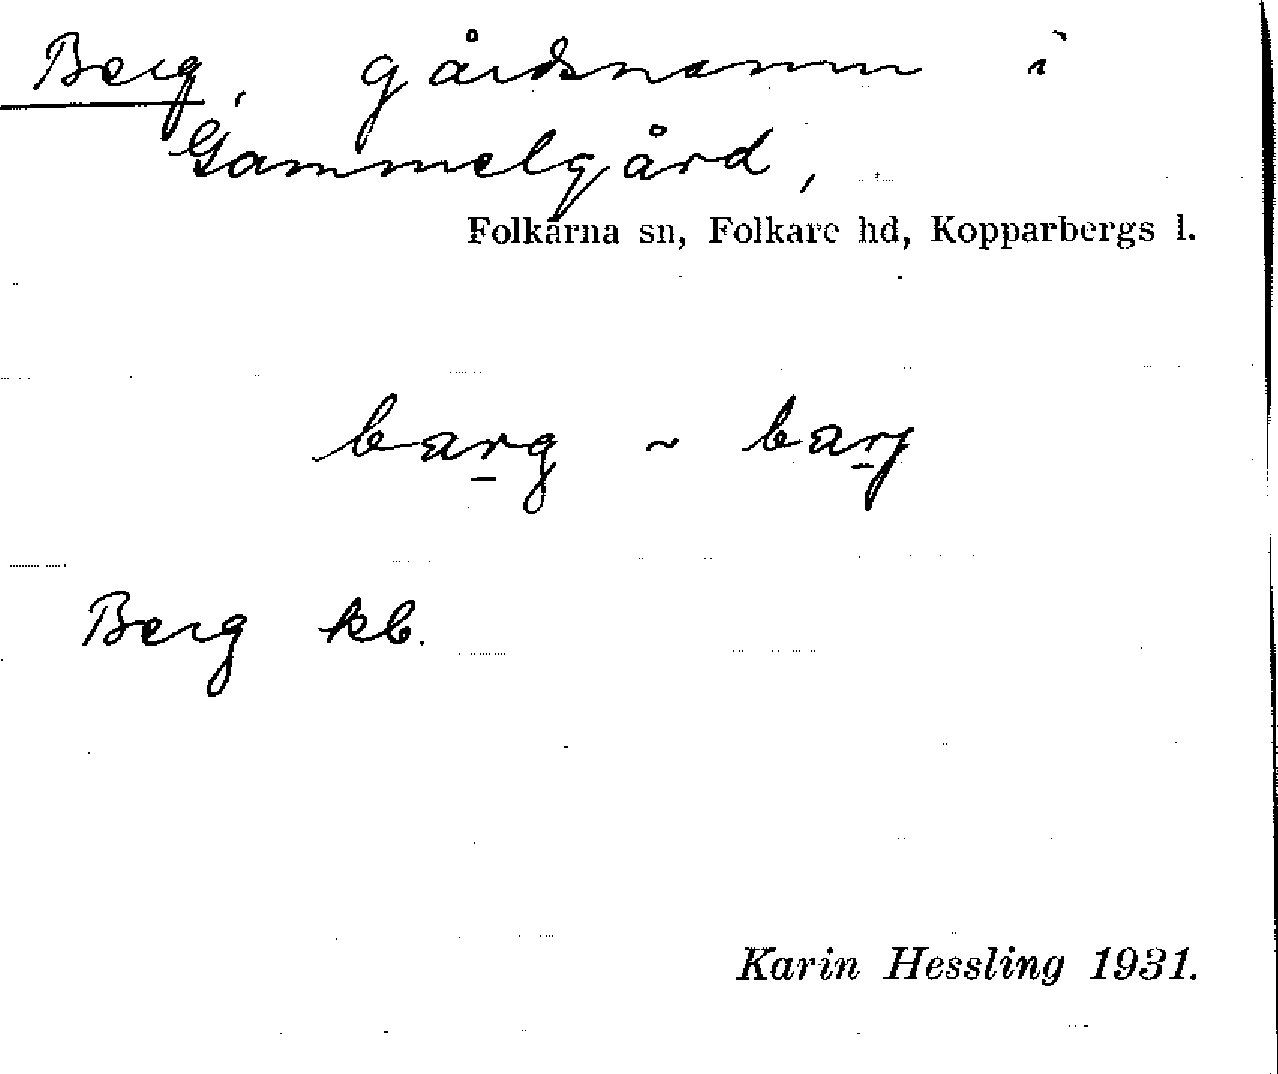 Berg, gårdsnamn i
Gammelgård,
Folkärna sn, Folkare hd, Kopparbergs l.
barg ~ barj
Berg kb.
Karin Hessling 1931.